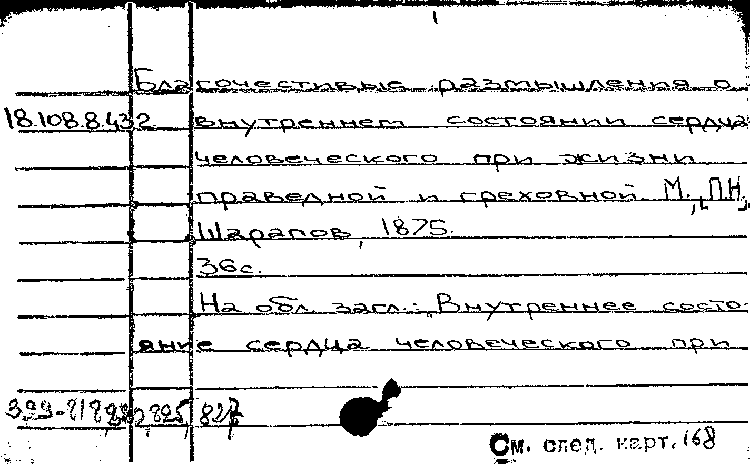 Благочестивые размышления о
18.108.8.432 внутреннем состоянии сердца
человеческого при жизни
праведной и греховной М., [П.Н.]
Шарапов, 1875.
36с.
На обл. загл.: Внутреннее состо-
яние сердца человеческого при
См. след. карт. 168